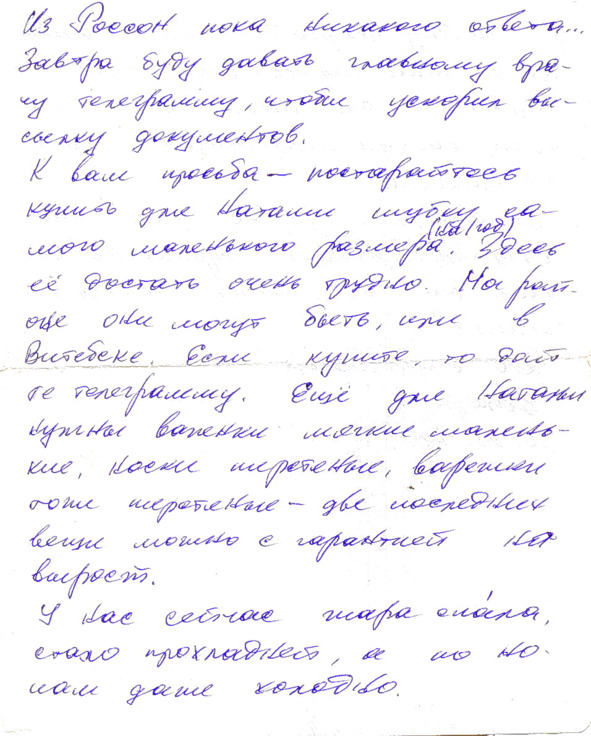 Из Россон пока никакого ответа...
Завтра буду давать главному вра-
чу телеграмму, чтобы ускорил вы-
сылку документов.
К вам просьба — постарайтесь
купить для Наташи шубку са-
мого маленького размера. (на 1 год) Здесь
её достать очень трудно. На рай-
оце они могут быть, или в
Витебске. Если купите, то дай-
те телеграмму. Ещё для Наташи
нужны валенки мягкие малень-
кие, носки шерстеные, варежки
тоже шерстеные — две последних
вещи можно с гарантией на
вырост.
У нас сейчас жара спáла,
стало прохладней, а по но-
чам даже холодно.